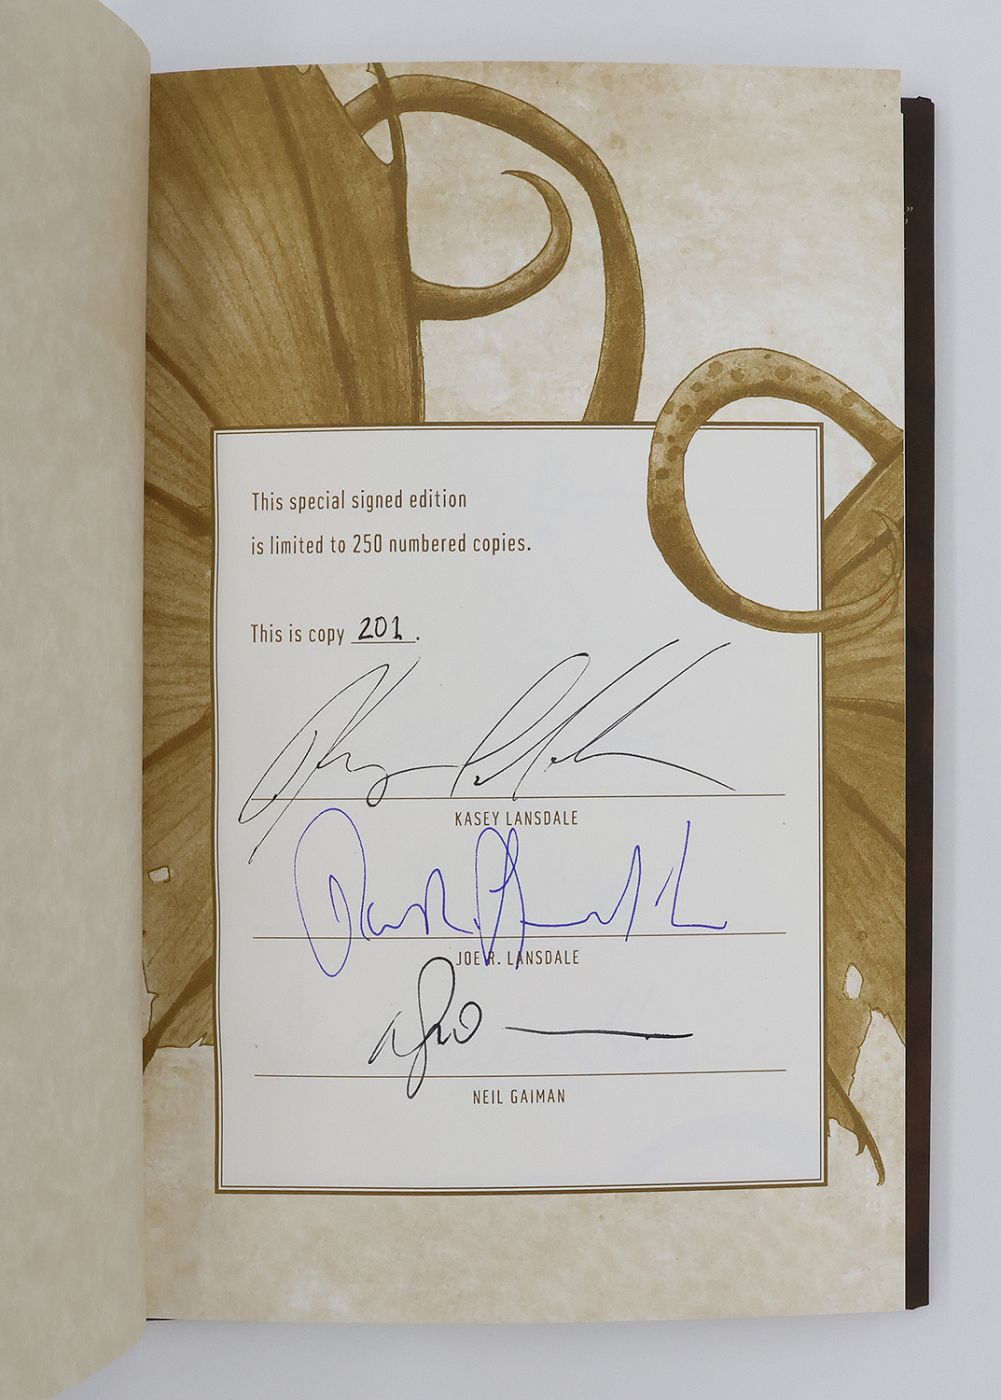 This special signed edition
is limited to 250 numbered copies.
This is copy 201.
KASEY LANSDALE
JOE R. LANSDALE
NEIL GAIMAN